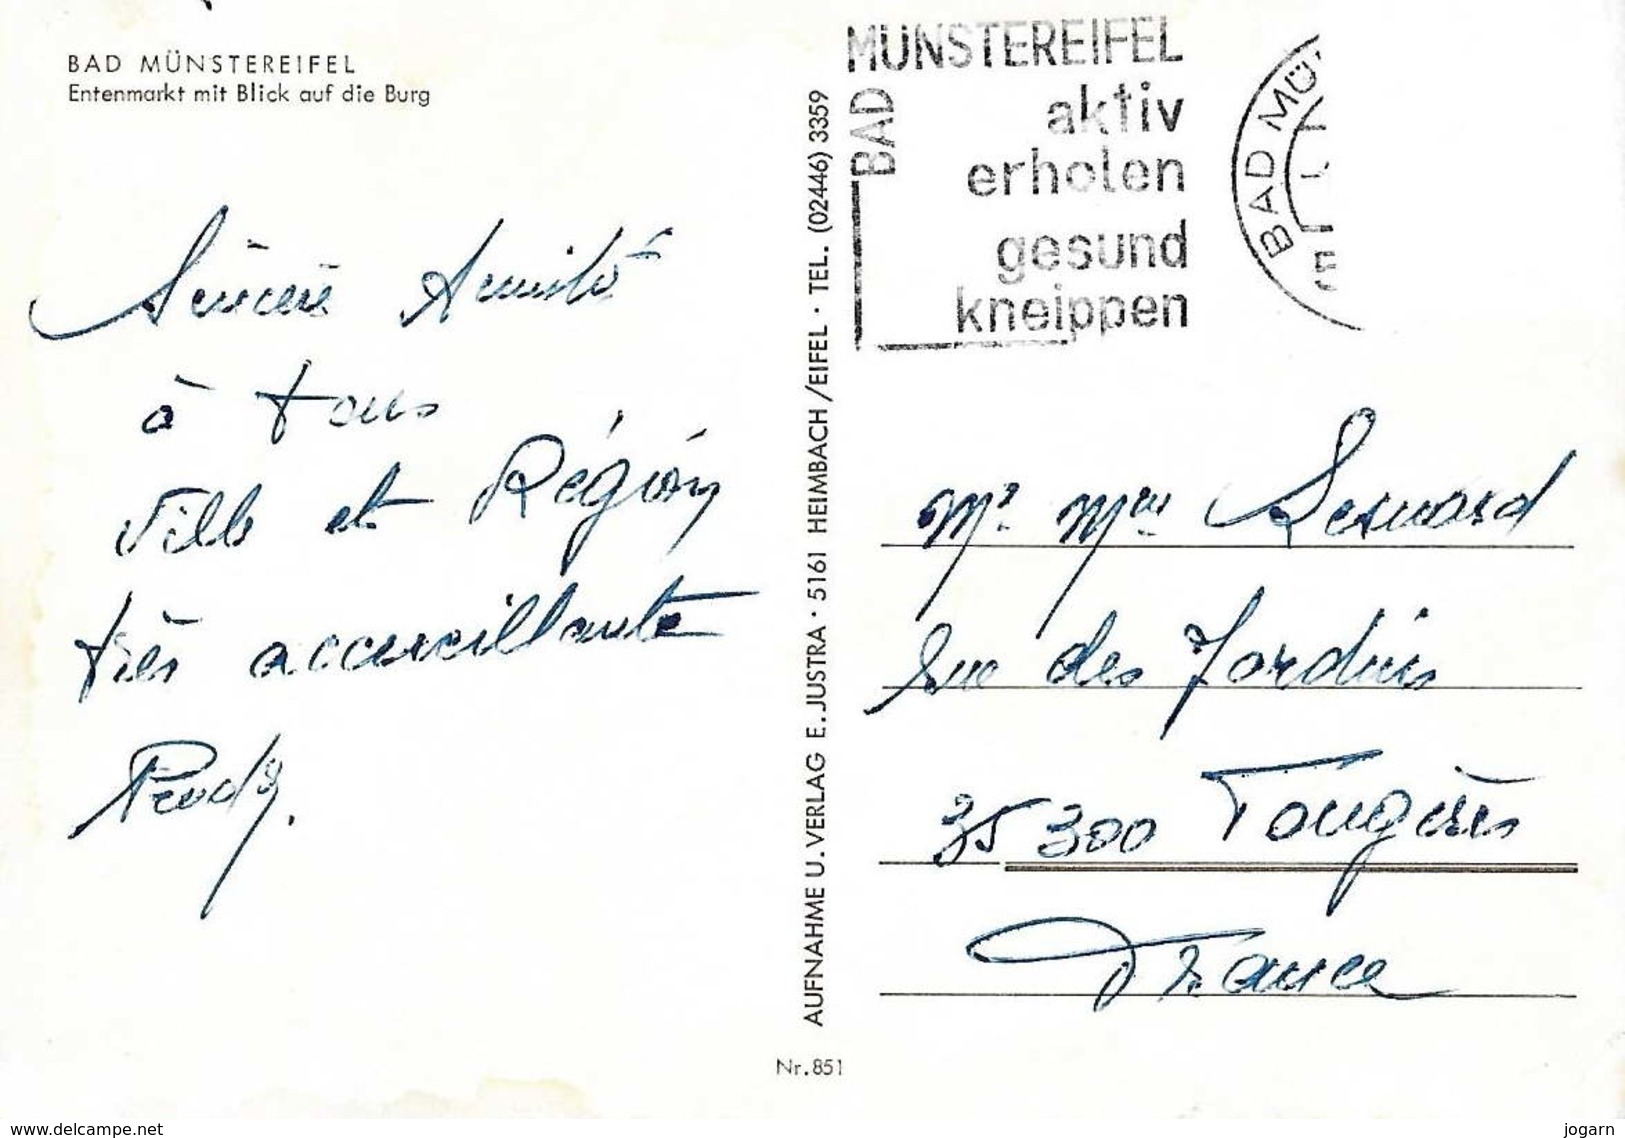 BAD MÜNSTEREIFEL
Entenmarkt mit Blick auf die Burg
Sincère Amitié
à tous
Ville et Région
très accueillante
Rudy.
AUFNAHME U. VERLAG E. JUSTRA · 5161 HEIMBACH/EIFEL · TEL. (02446) 3359
Nr. 851
BAD MÜNSTEREIFEL
aktiv
erholen
gesund
kneippen
BAD MÜ
Mr Mme
Rue des Jardins
35300 Fougères
France
delcampe.net
jogarn